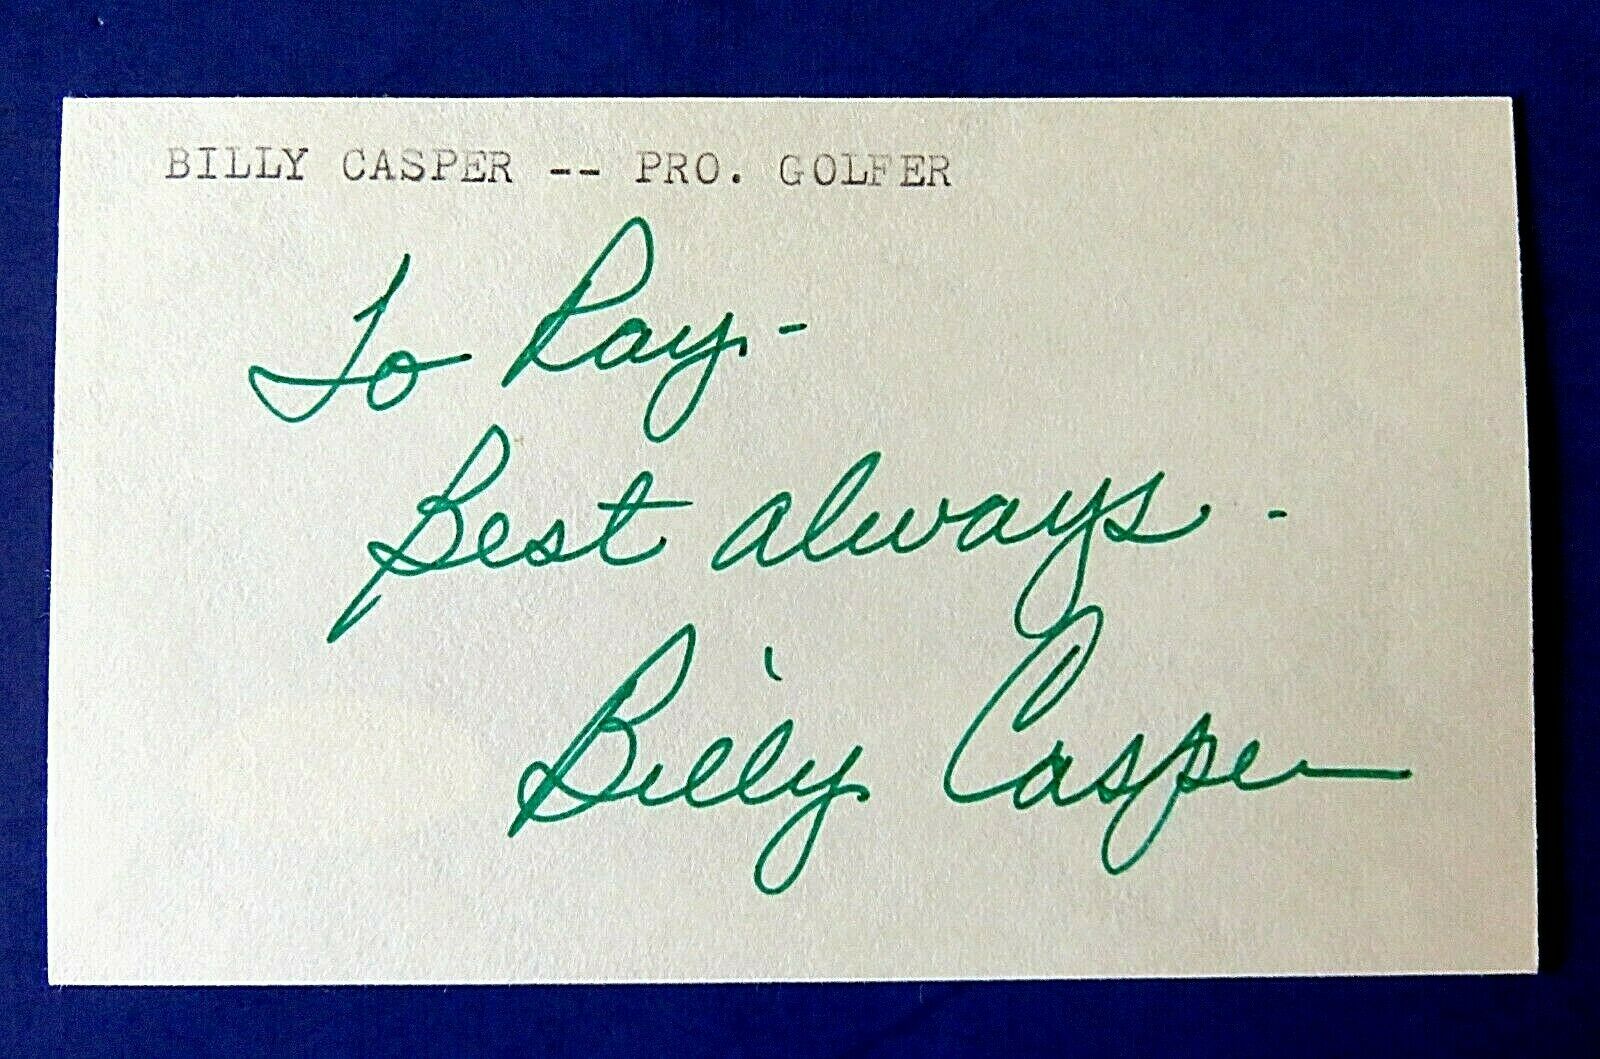 BILLY CASPER -- PRO. GOLFER
To Ray -
Best always -
Billy Casper